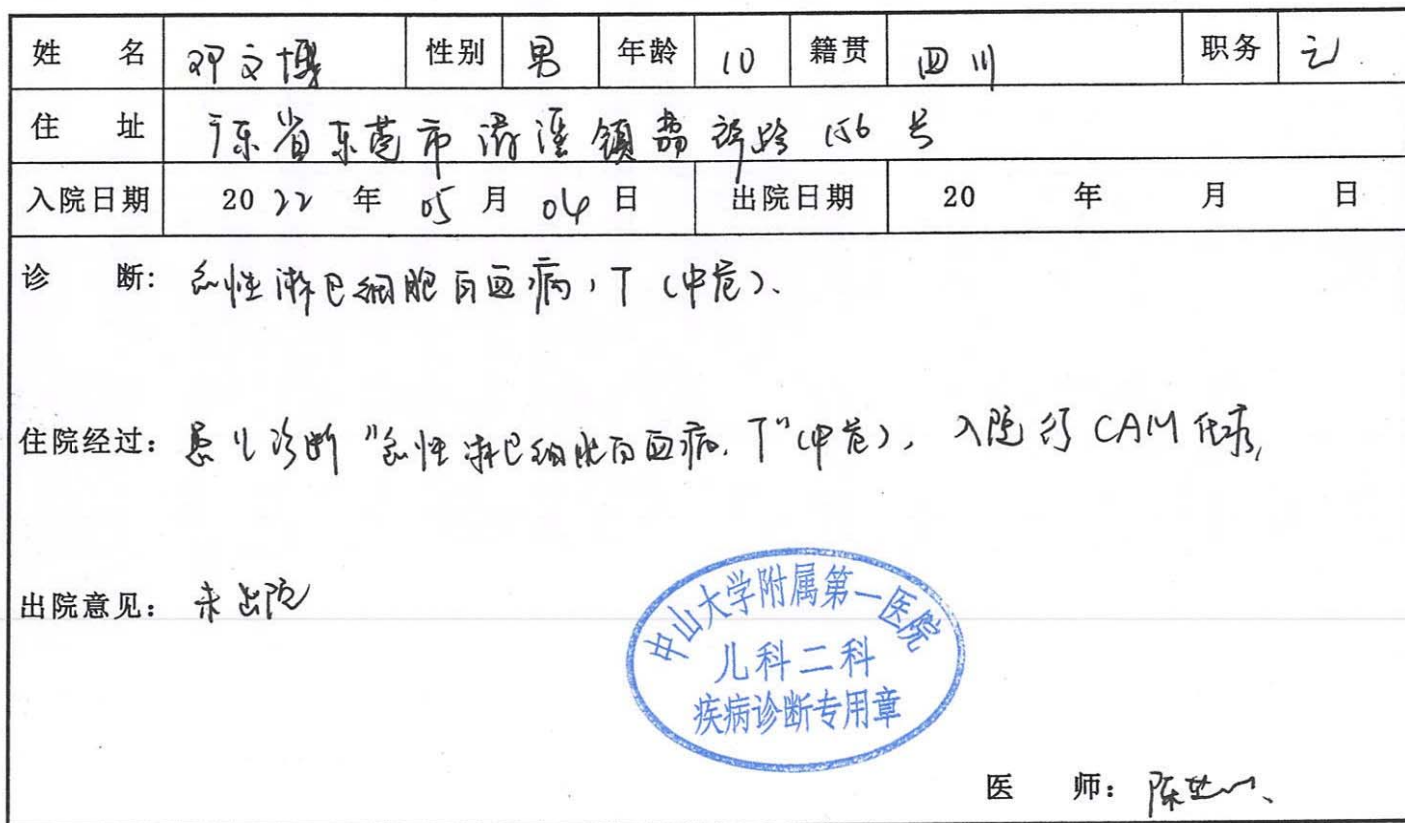 姓 名 邓文博 性别 男 年龄 10 籍贯 四川 职务 无
住 址 广东省东莞市 镇 路 156号
入院日期 2022 年 05 月 04 日 出院日期 20 年 月 日
诊 断: 急性淋巴细胞白血病,T(中危).
住院经过: 患儿诊断"急性淋巴细胞白血病.T"(中危), 入院行CAM化疗,
出院意见: 未出院
中山大学附属第一医院
儿科二科
疾病诊断专用章
医 师: 陈